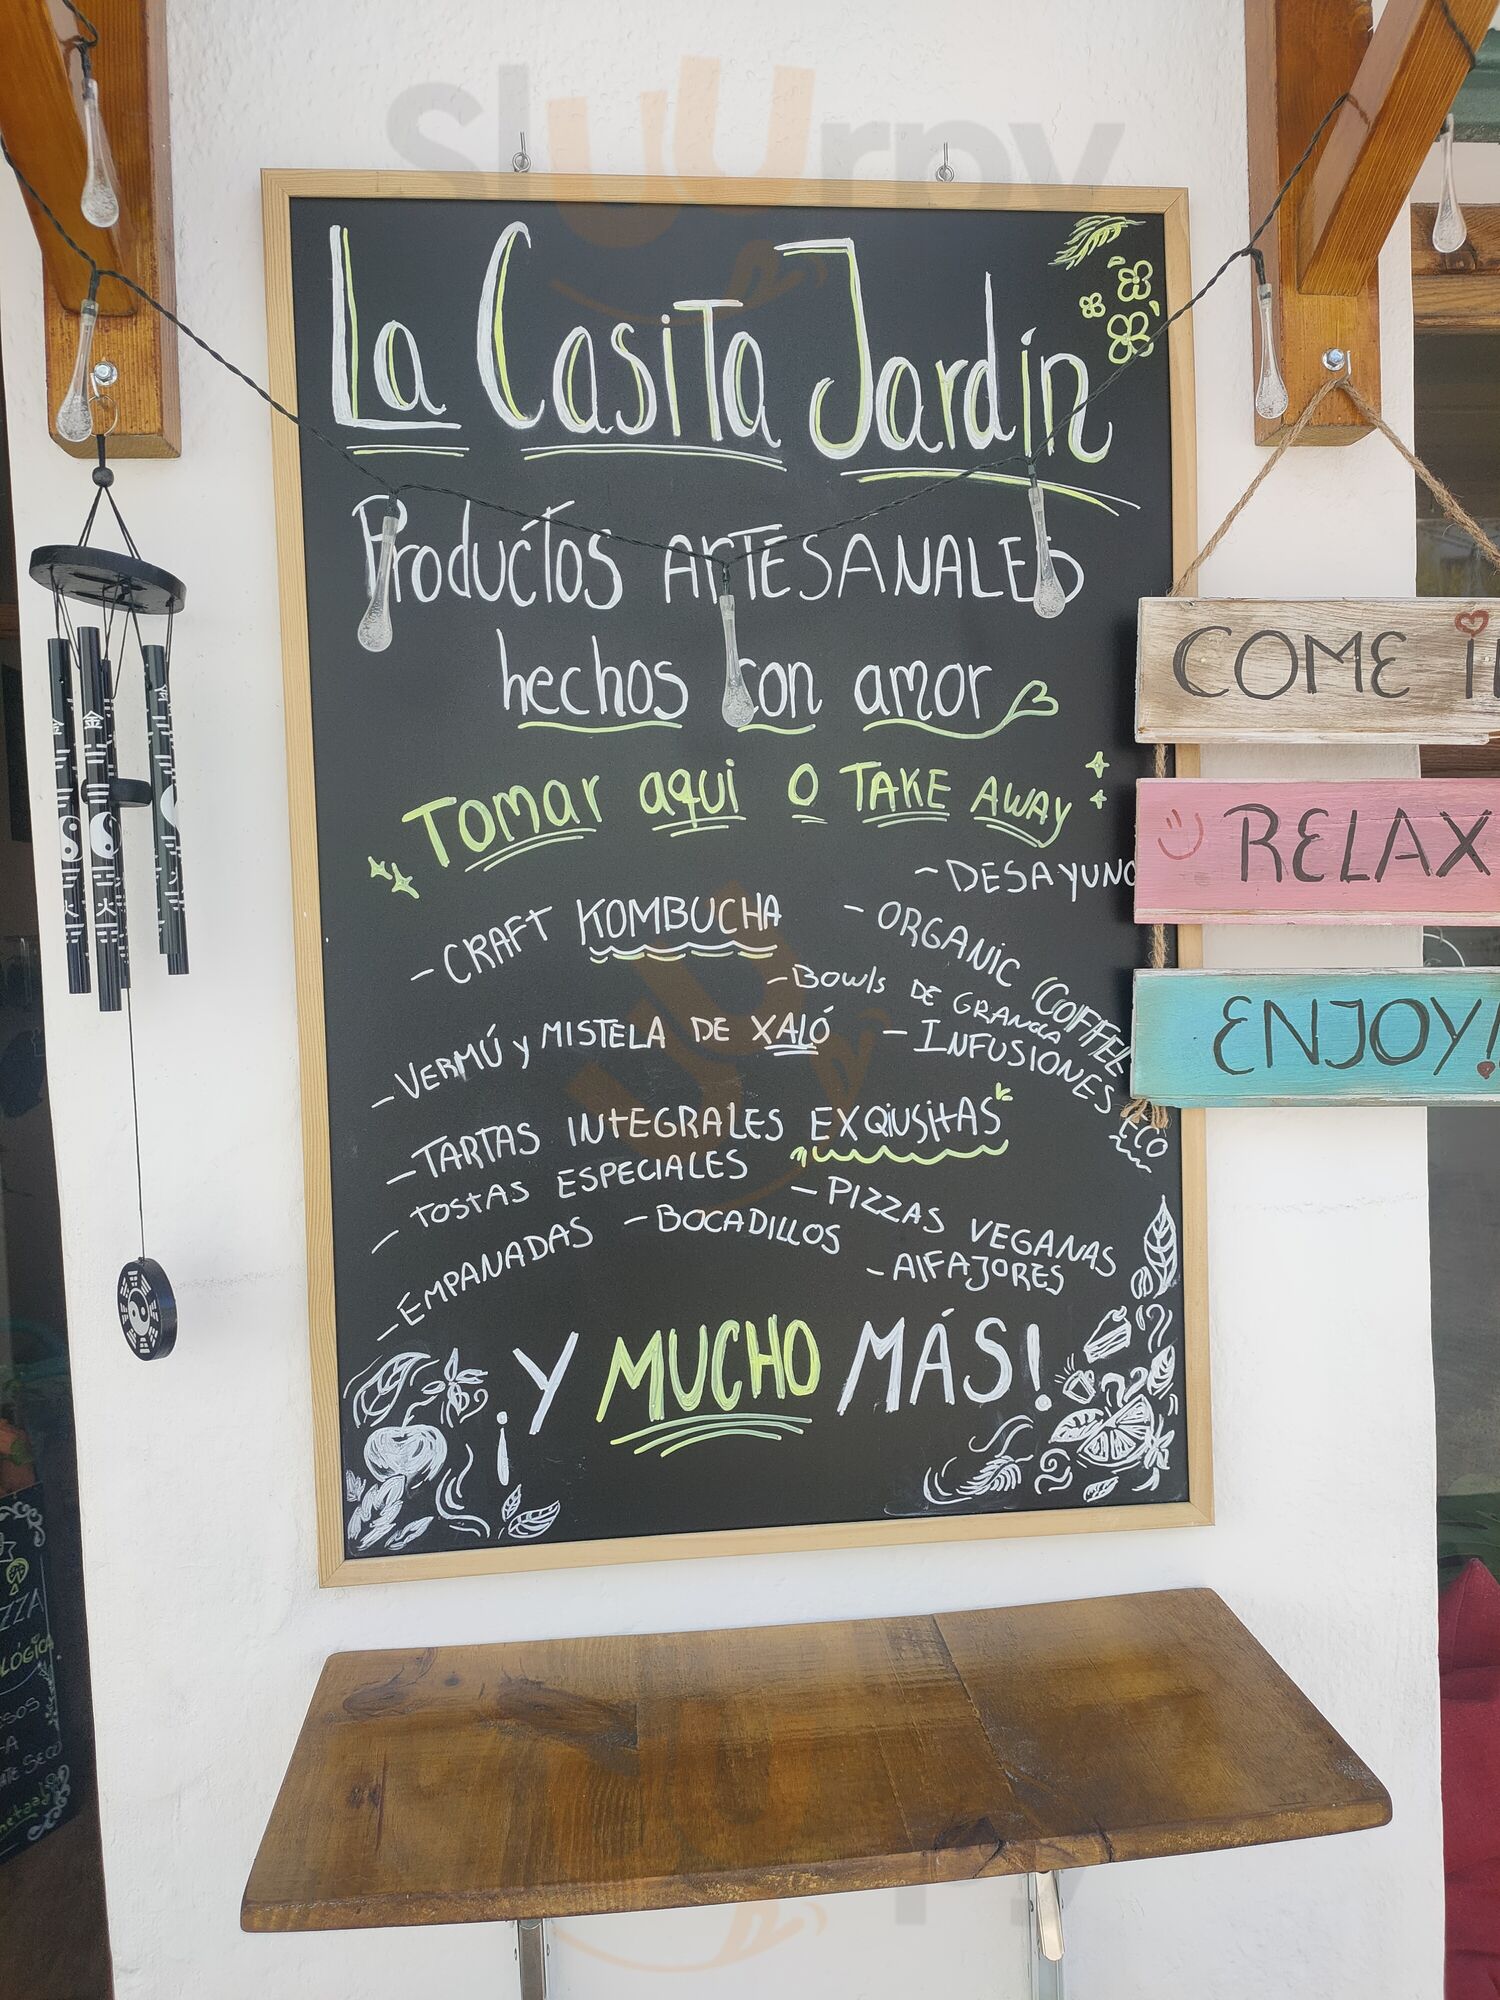 sluurpy
La Casita Jardín
Productos ARTESANALES
hechos con amor
TOMAR aquí O TAKE AWAY
- DESAYUNO
- CRAFT KOMBUCHA
- ORGANIC COFFEE
- Bowls DE GRANOLA
- VERMÚ y MISTELA DE XALÓ
- INFUSIONES ECO
- TARTAS INTEGRALES EXQIUSITAS
- TOSTAS ESPECIALES
- PIZZAS VEGANAS
- EMPANADAS
- BOCADILLOS
- AlFAJORES
¡Y MUCHO MÁS!
COME IN
RELAX
ENJOY!
金
火
ZZA
LÓGICA
sluurpy